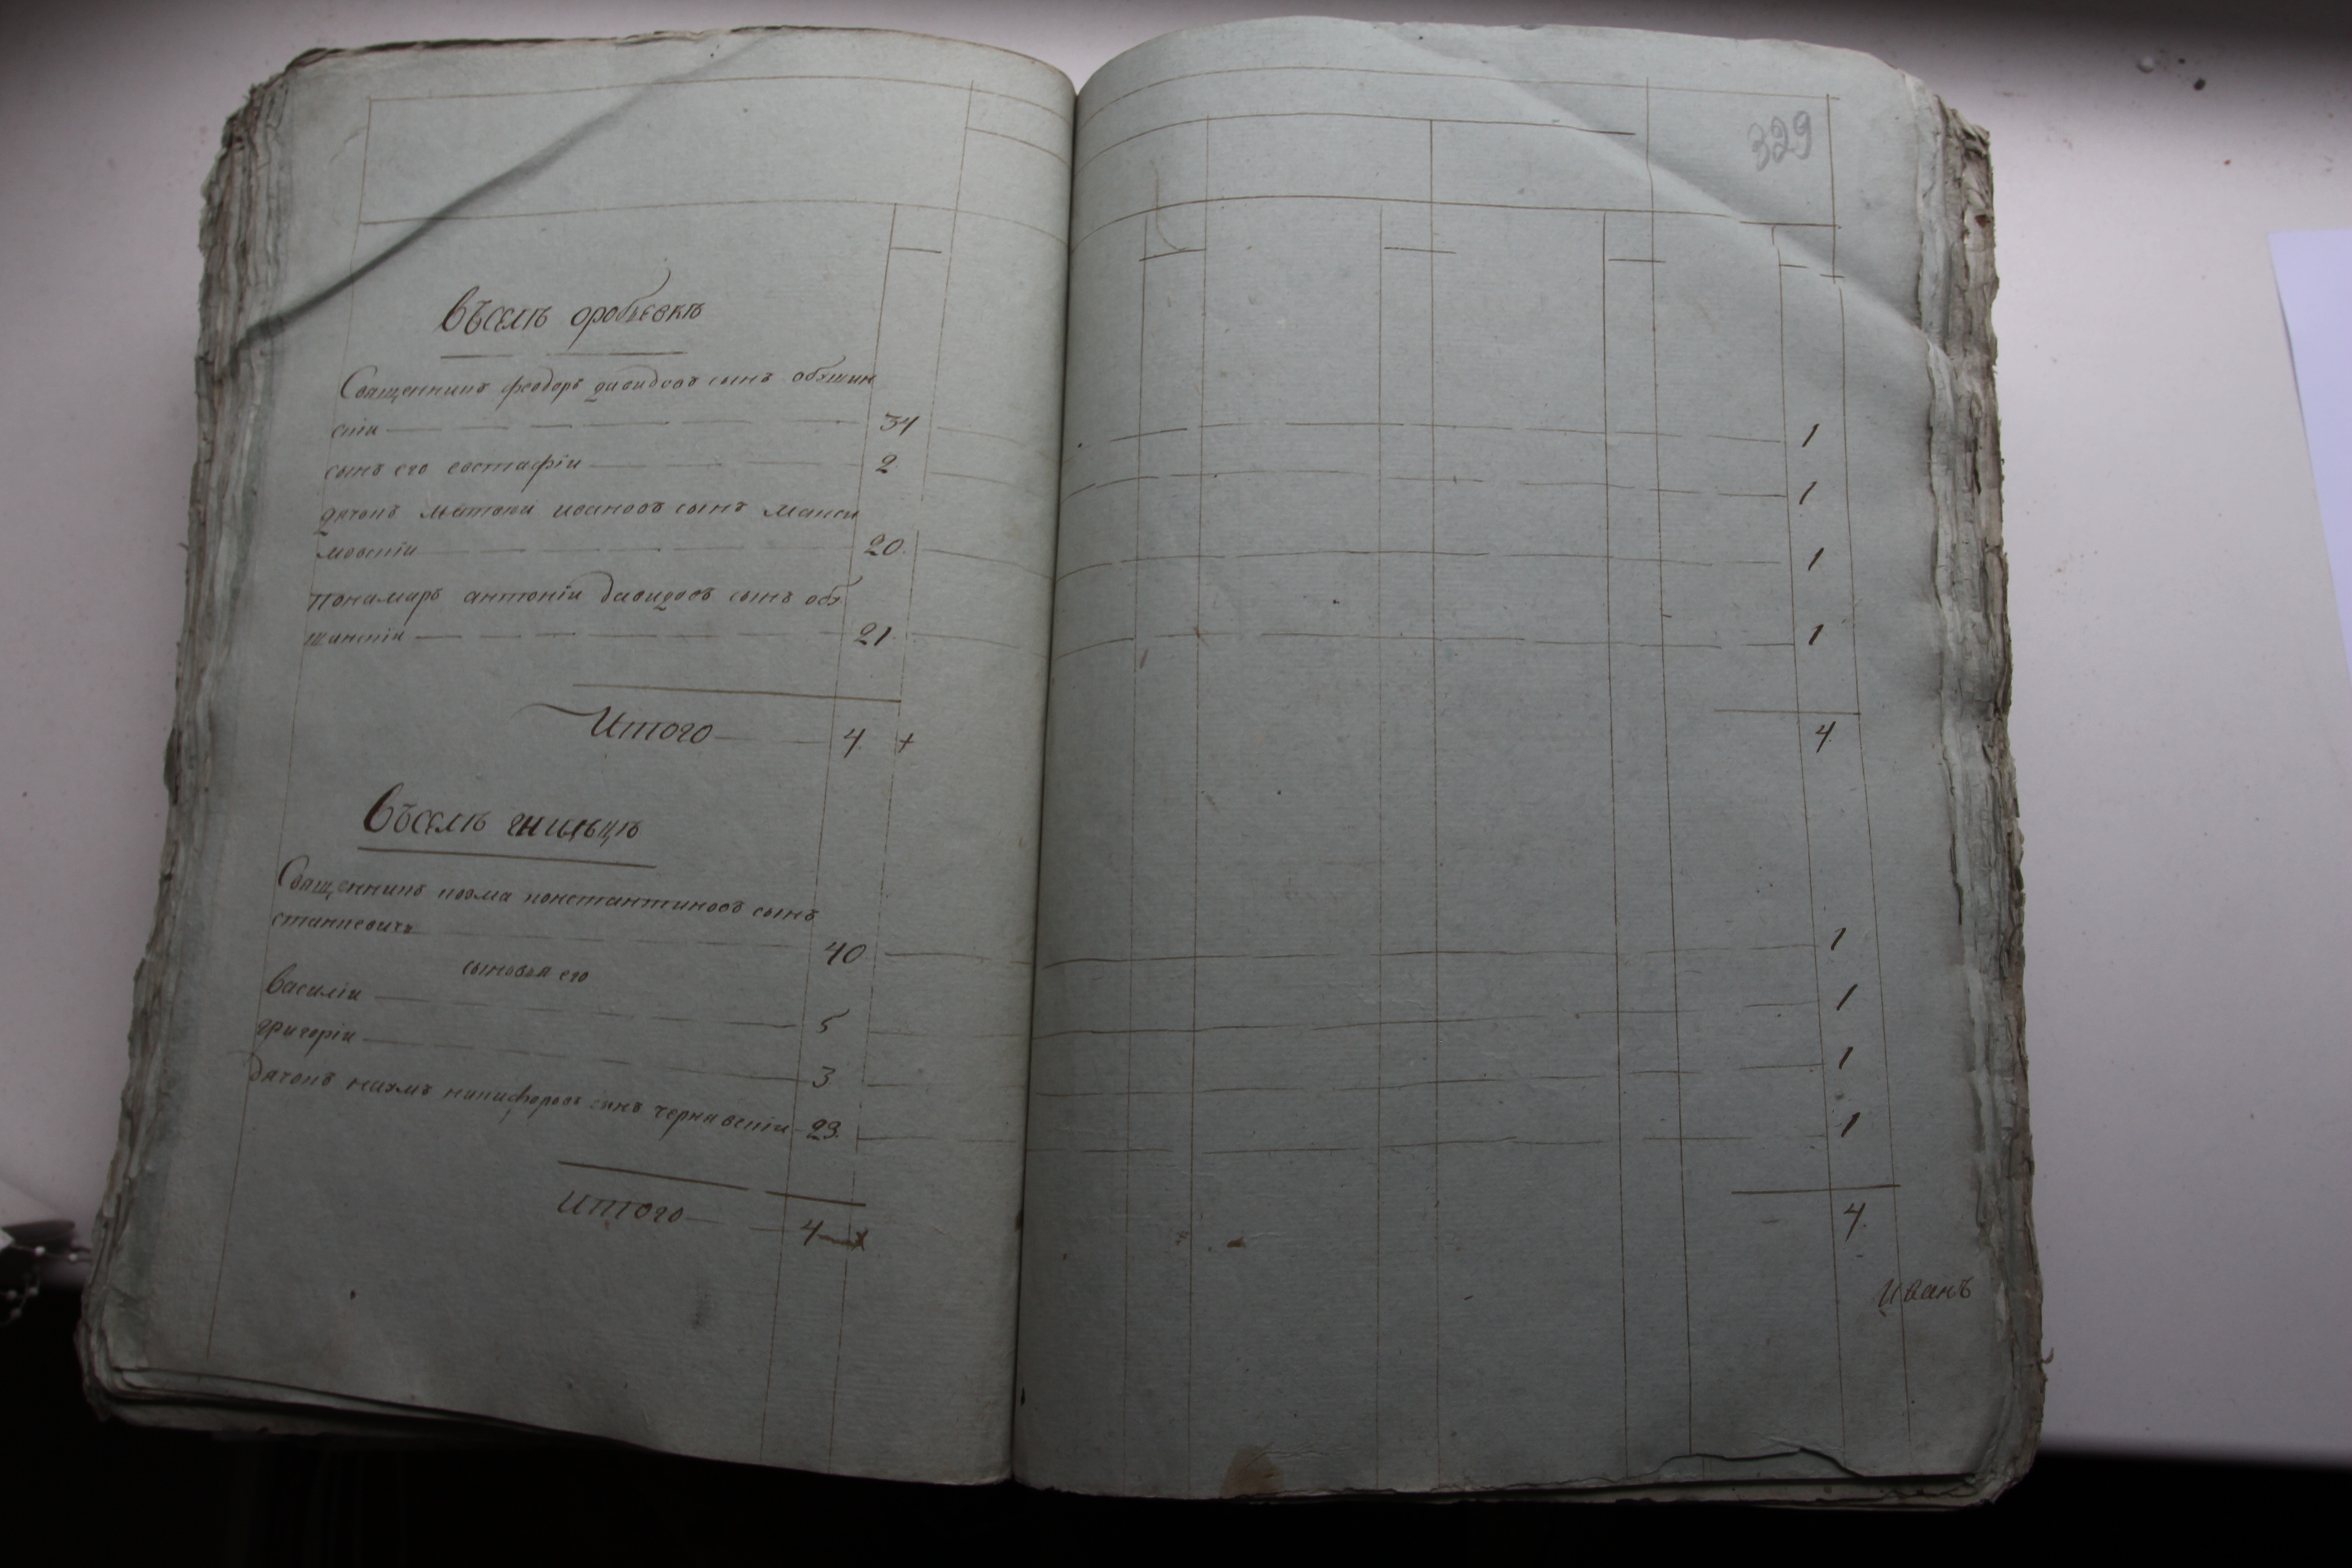 329
Въселѣ оробьевкѣ
Священникъ феодоръ давидовъ сынъ обяшин
скіи 34 1
сынъ его евстафіи 2 1
дячокъ матвеи ивановъ сынъ макси
мовскіи 20. 1
пономарь антоніи давидовъ сынъ обя
шинскіи 21. 1
Итого 4. + 4.
Въселѣ гнильцѣ
Священникъ козма константиновъ сынъ
станкевичъ 40 1
сыновья его
василіи 5 1
григоріи 3 1
дячокъ наумъ никифоровъ сынъ чернявскіи 29. 1
Итого 4 4.
Иванъ